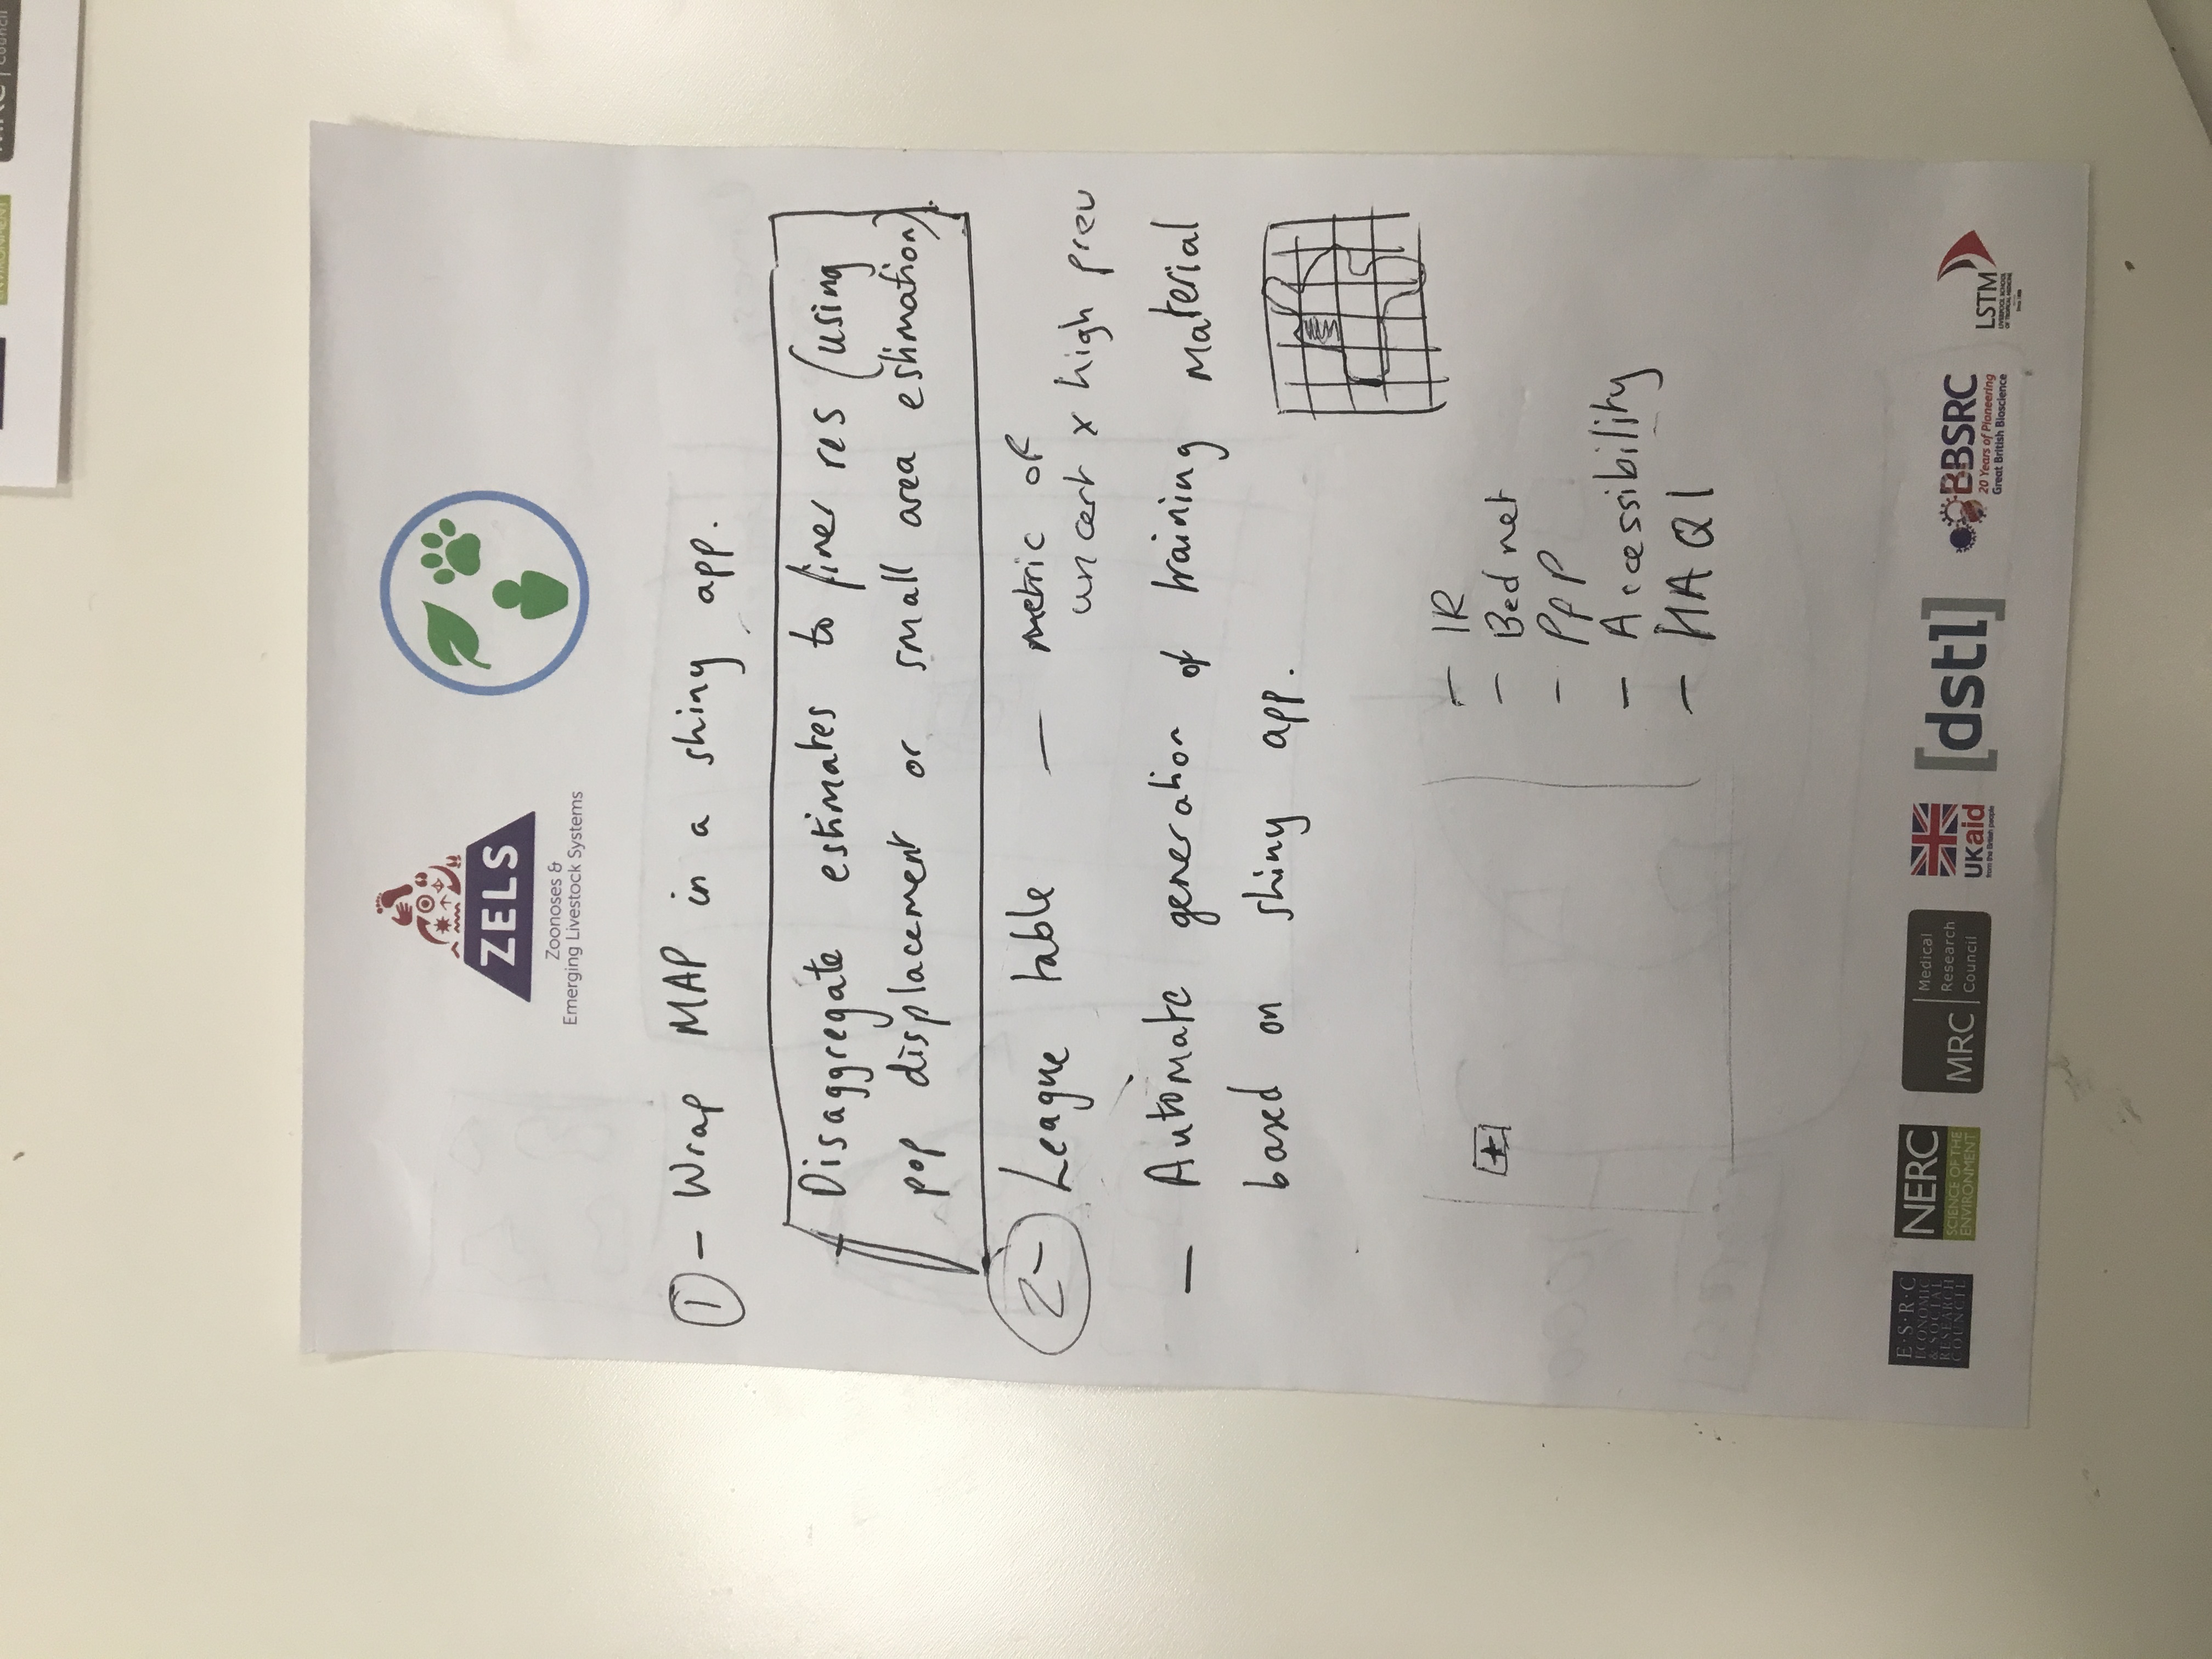 MRC Council
ZELS
Zoonoses &
Emerging Livestock Systems
① – Wrap MAP in a shiny app.
– Disaggregate estimates to finer res (using
pop displacement or small area estimation).
2– League table — metric of
uncert x high prev
— Automate generation of training material
based on shiny app.
– IR
– Bed net
– PfP
– Accessibility
– HAQI
E·S·R·C
ECONOMIC
& SOCIAL
RESEARCH
COUNCIL
NERC
SCIENCE OF THE
ENVIRONMENT
MRC
Medical
Research
Council
UKaid
from the British people
[dstl]
BBSRC
20 Years of Pioneering
Great British Bioscience
LSTM
LIVERPOOL SCHOOL
OF TROPICAL MEDICINE